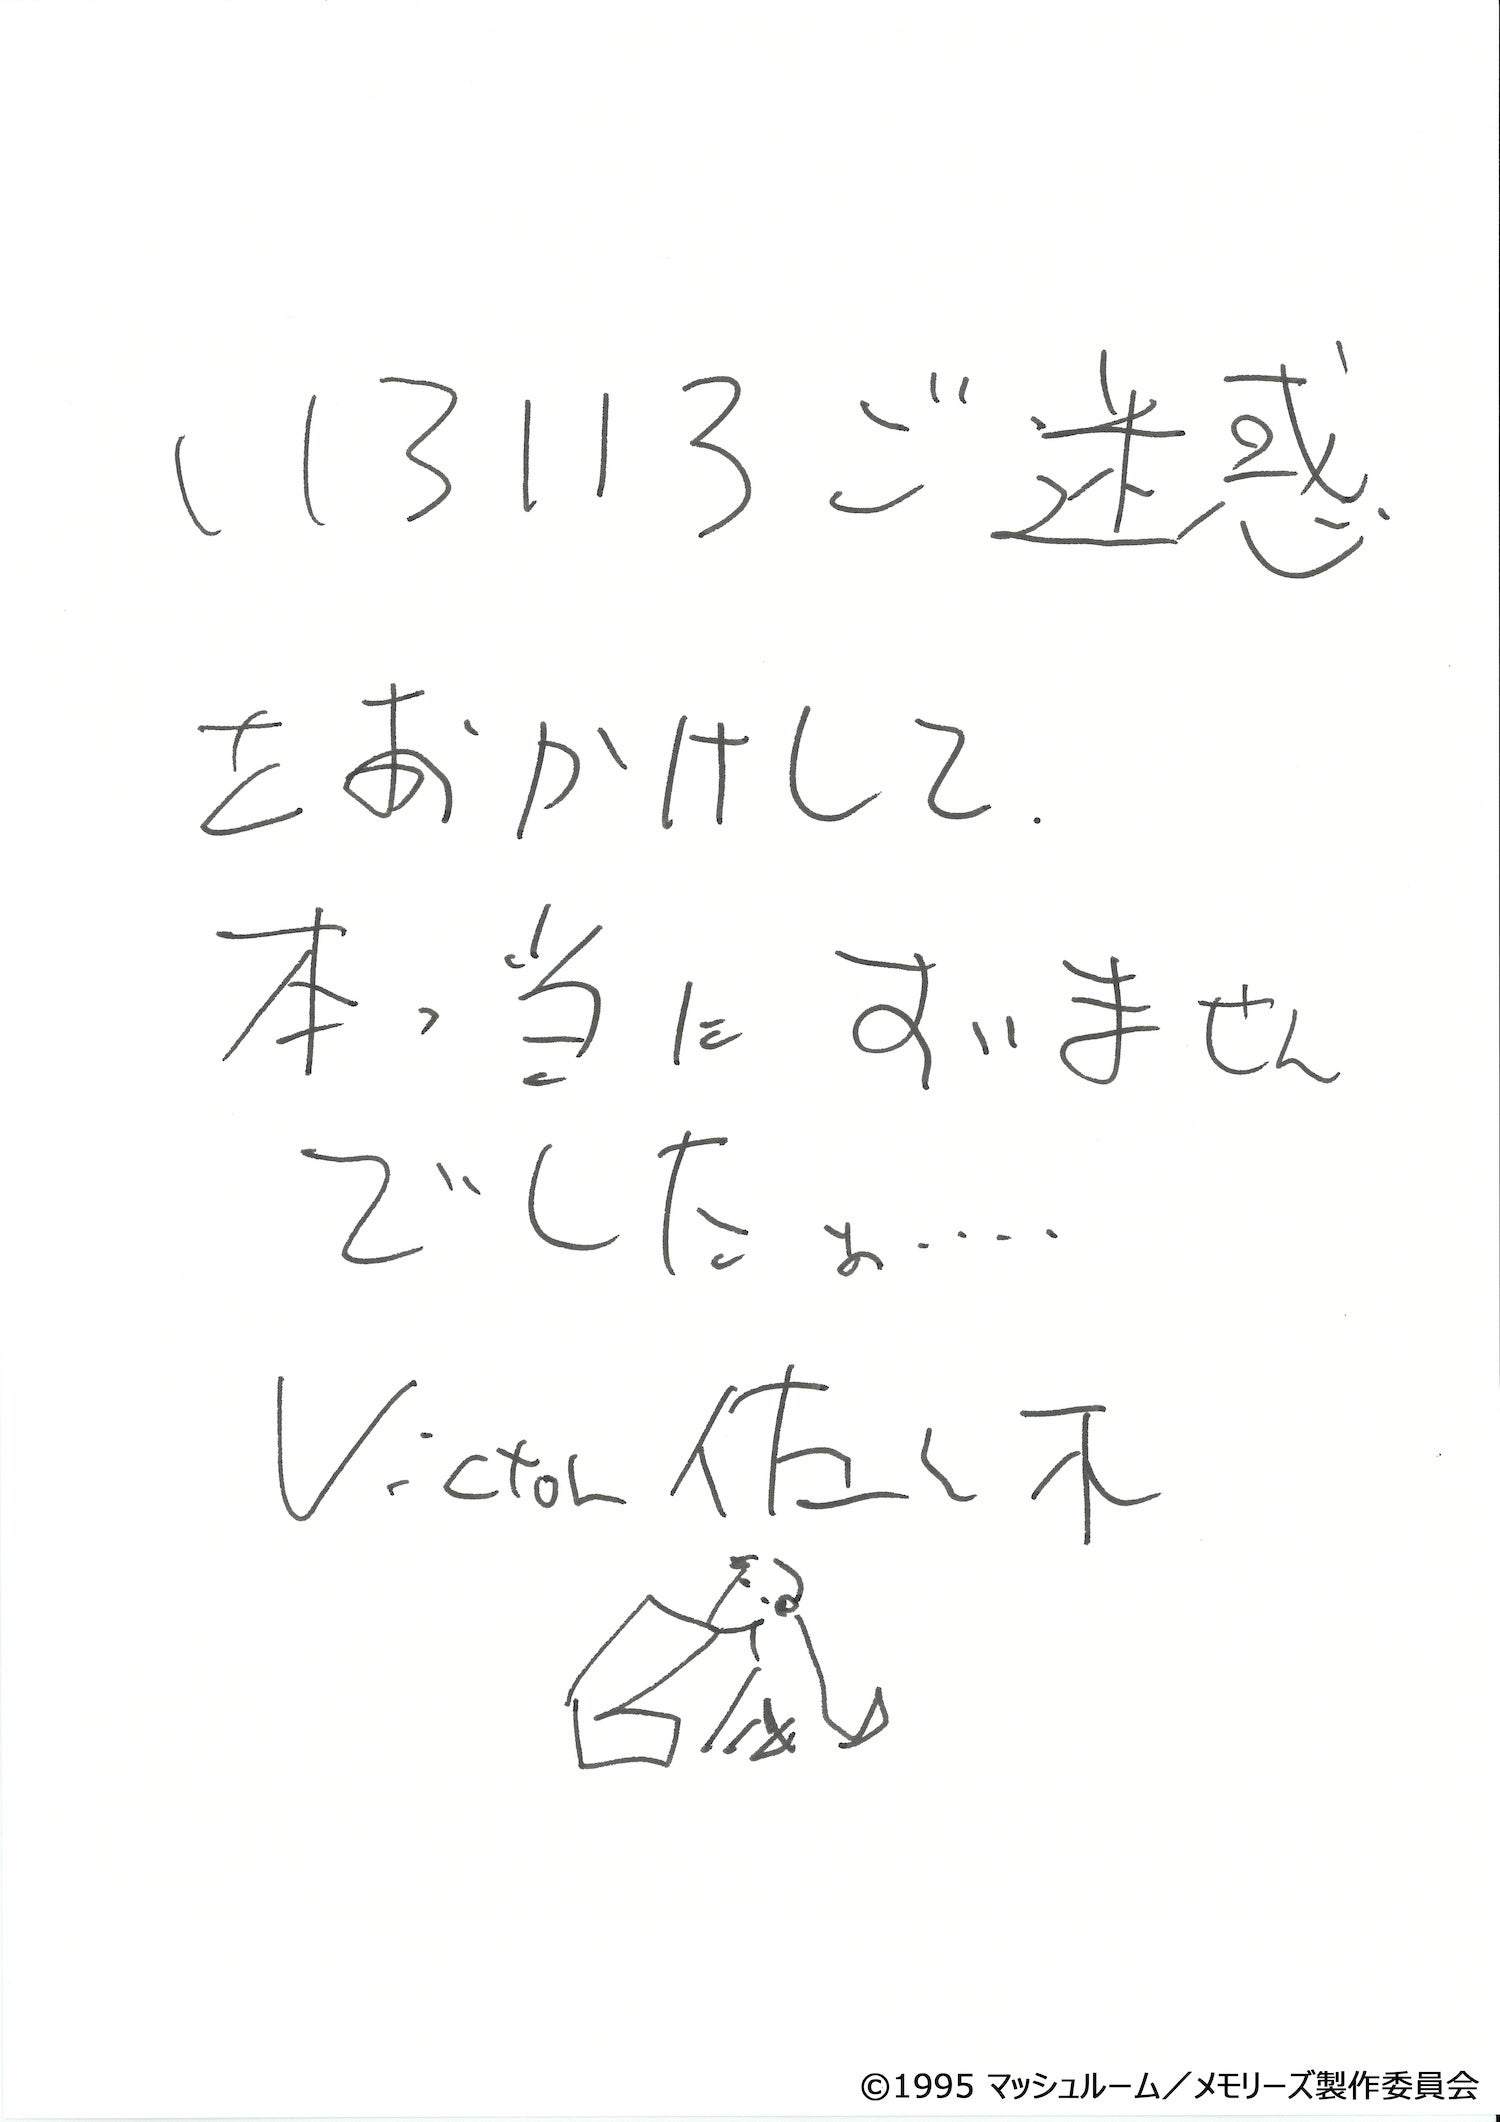 いろいろご迷惑
をおかけして.
本っ当にすいません
でしたぉ.....
Victor 佐々木
©1995 マッシュルーム／メモリーズ製作委員会